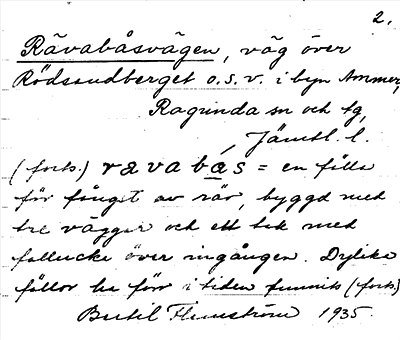 2.
Rävabåsvägen, väg över
Rödsandberget o.s.v. i byn Ammer,
Ragunda sn och tg,
Jämtl. l.
(forts.) rävabås = en fälla
för fånget av räv, byggd med
tre väggar och ett tak med
fallucka över ingången. Dylika
fällor ha förr i tiden funnits (forts.)
Bertil Flemström 1935.